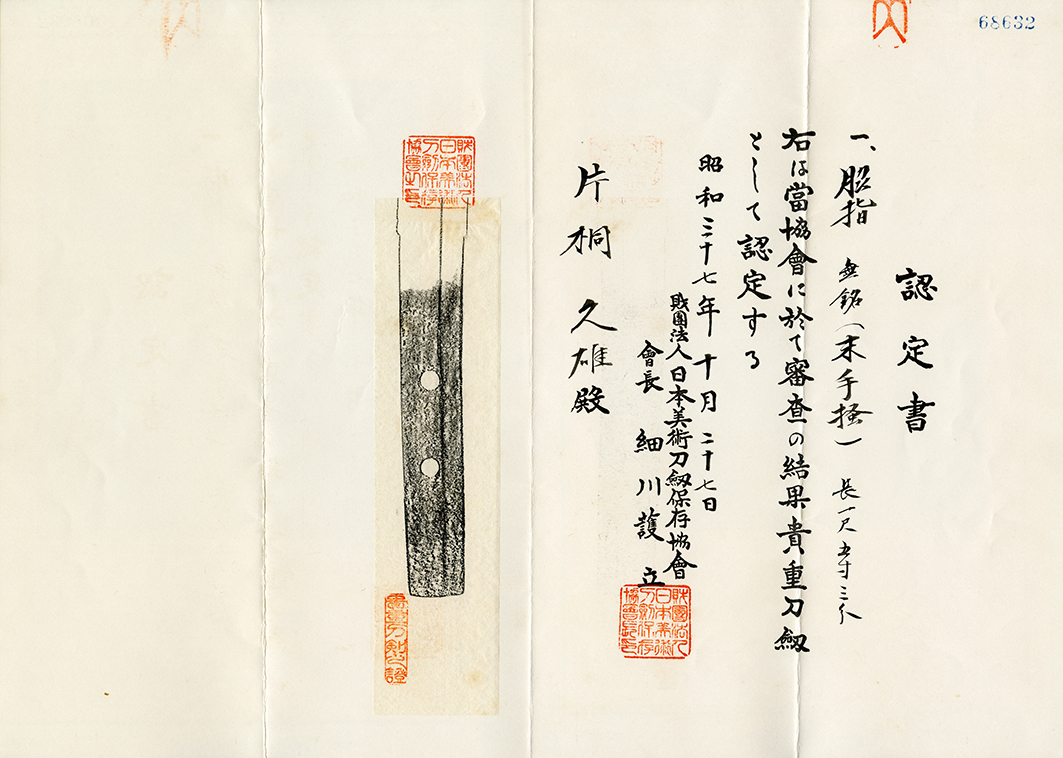 68632
認定書
一、脇指 無銘(末手掻) 長一尺五寸三分
右は當協會に於て審査の結果貴重刀劔
として認定する
昭和三十七年十月二十七日
財團法人日本美術刀劔保存協會
會長 細川護立
片桐 久雄殿
財團法人日本美術刀劔保存協會之印
財團法人日本美術刀劔保存協會長之印
貴重刀剣之證